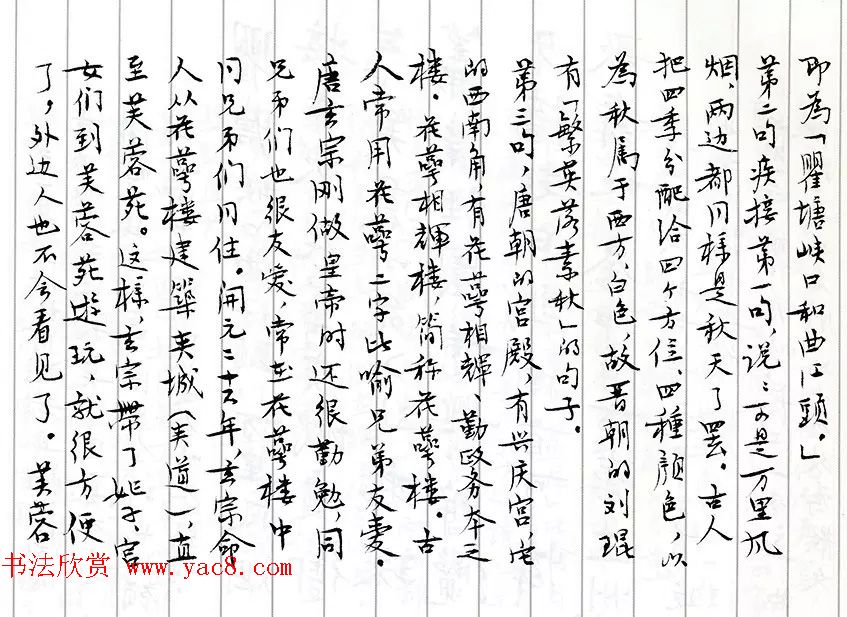 即为「瞿塘峡口和曲江頭。」
第二句疾接第一句，说：可是万里风
烟，两边都同样是秋天了罢。古人
把四季分配给四个方位、四種颜色，以
為秋属于西方、白色，故晋朝的刘琨
有「繁英落素秋」的句子。
第三句，唐朝的宫殿，有兴庆宫，宫
的西南角，有花萼相輝、勤政务本之
楼。花萼相輝楼，简称花萼楼。古
人常用花萼二字比喻兄弟友爱。
唐玄宗刚做皇帝时还很勤勉，同
兄弟们也很友爱，常在花萼楼中
同兄弟们同住。開元二十六年，玄宗命
人从花萼楼建築夹城（夹道），直
至芙蓉苑。这様，玄宗带了妃子、宫
女们到芙蓉苑遊玩，就很方便
了，外边人也不会看见了。芙蓉
书法欣赏 www.yac8.com